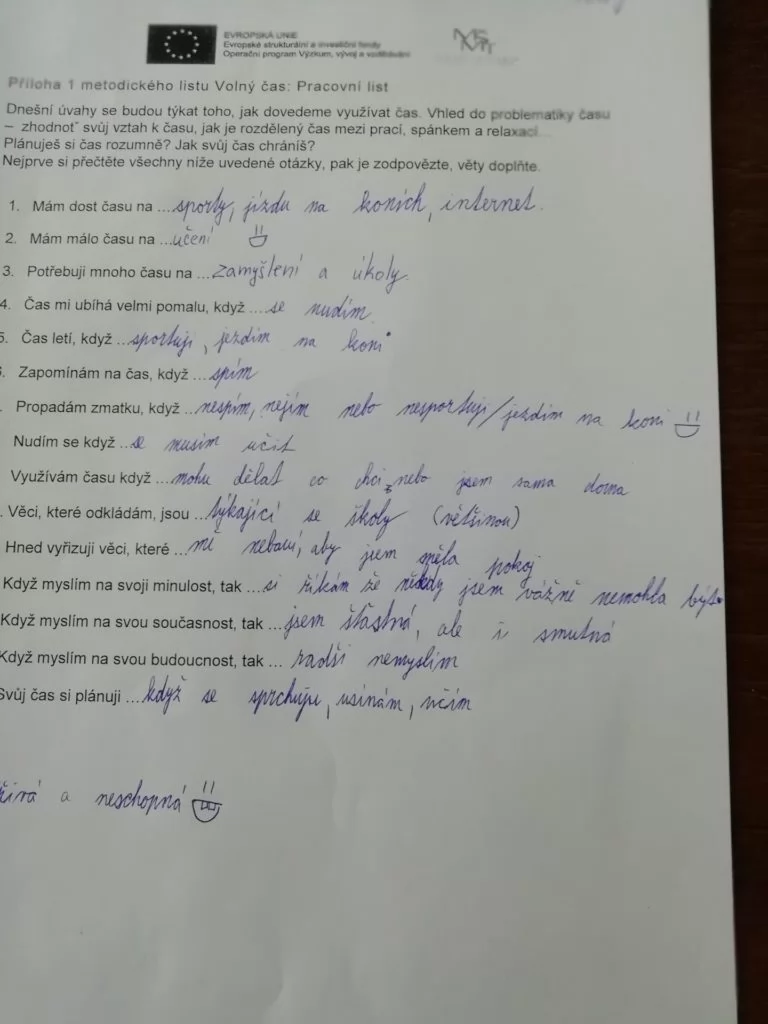 EVROPSKÁ UNIE
Evropské strukturální a investiční fondy
Operační program Výzkum, vývoj a vzdělávání
MŠMT
Příloha 1 metodického listu Volný čas: Pracovní list
Dnešní úvahy se budou týkat toho, jak dovedeme využívat čas. Vhled do problematiky času
– zhodnoť svůj vztah k času, jak je rozdělený čas mezi prací, spánkem a relaxací...
Plánuješ si čas rozumně? Jak svůj čas chráníš?
Nejprve si přečtěte všechny níže uvedené otázky, pak je zodpovězte, věty doplňte.
1. Mám dost času na ...sporty, jízdu na koních, internet.
2. Mám málo času na ...učení
3. Potřebuji mnoho času na ...zamyšlení a úkoly.
4. Čas mi ubíhá velmi pomalu, když ....se nudím.
5. Čas letí, když ...sportuji, jezdím na koni
. Zapomínám na čas, když ...spím
. Propadám zmatku, když ...nespím, nejím nebo nesportuji/jezdím na koni
Nudím se když ...se musím učit
Využívám času když ...mohu dělat co chci, nebo jsem sama doma
. Věci, které odkládám, jsou ...týkající se školy (většinou)
Hned vyřizuji věci, které ...mě nebaví, aby jsem měla pokoj
Když myslím na svoji minulost, tak ...si říkám že někdy jsem vážně nemohla být.
Když myslím na svou současnost, tak ...jsem šťastná, ale i smutná
Když myslím na svou budoucnost, tak ...radši nemyslím
Svůj čas si plánuji ....když se sprchuju, usínám, učím
a neschopná